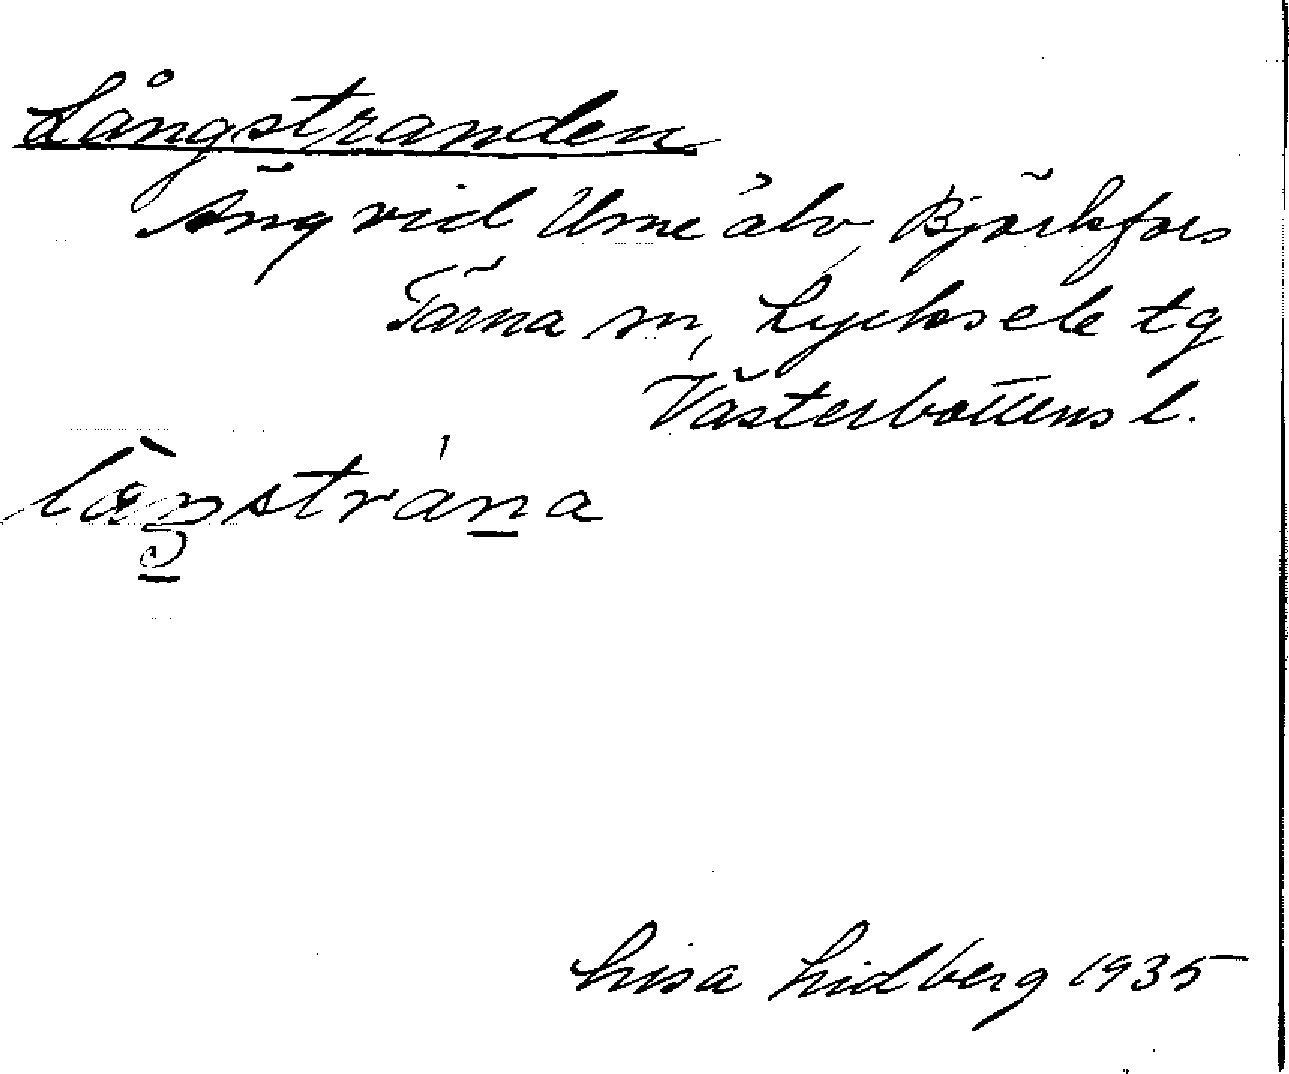 Långstranden
Äng vid Ume älv, Björkfors
Tärna sn, Lycksele tg
Västerbottens l.
Lisa Lidberg 1935